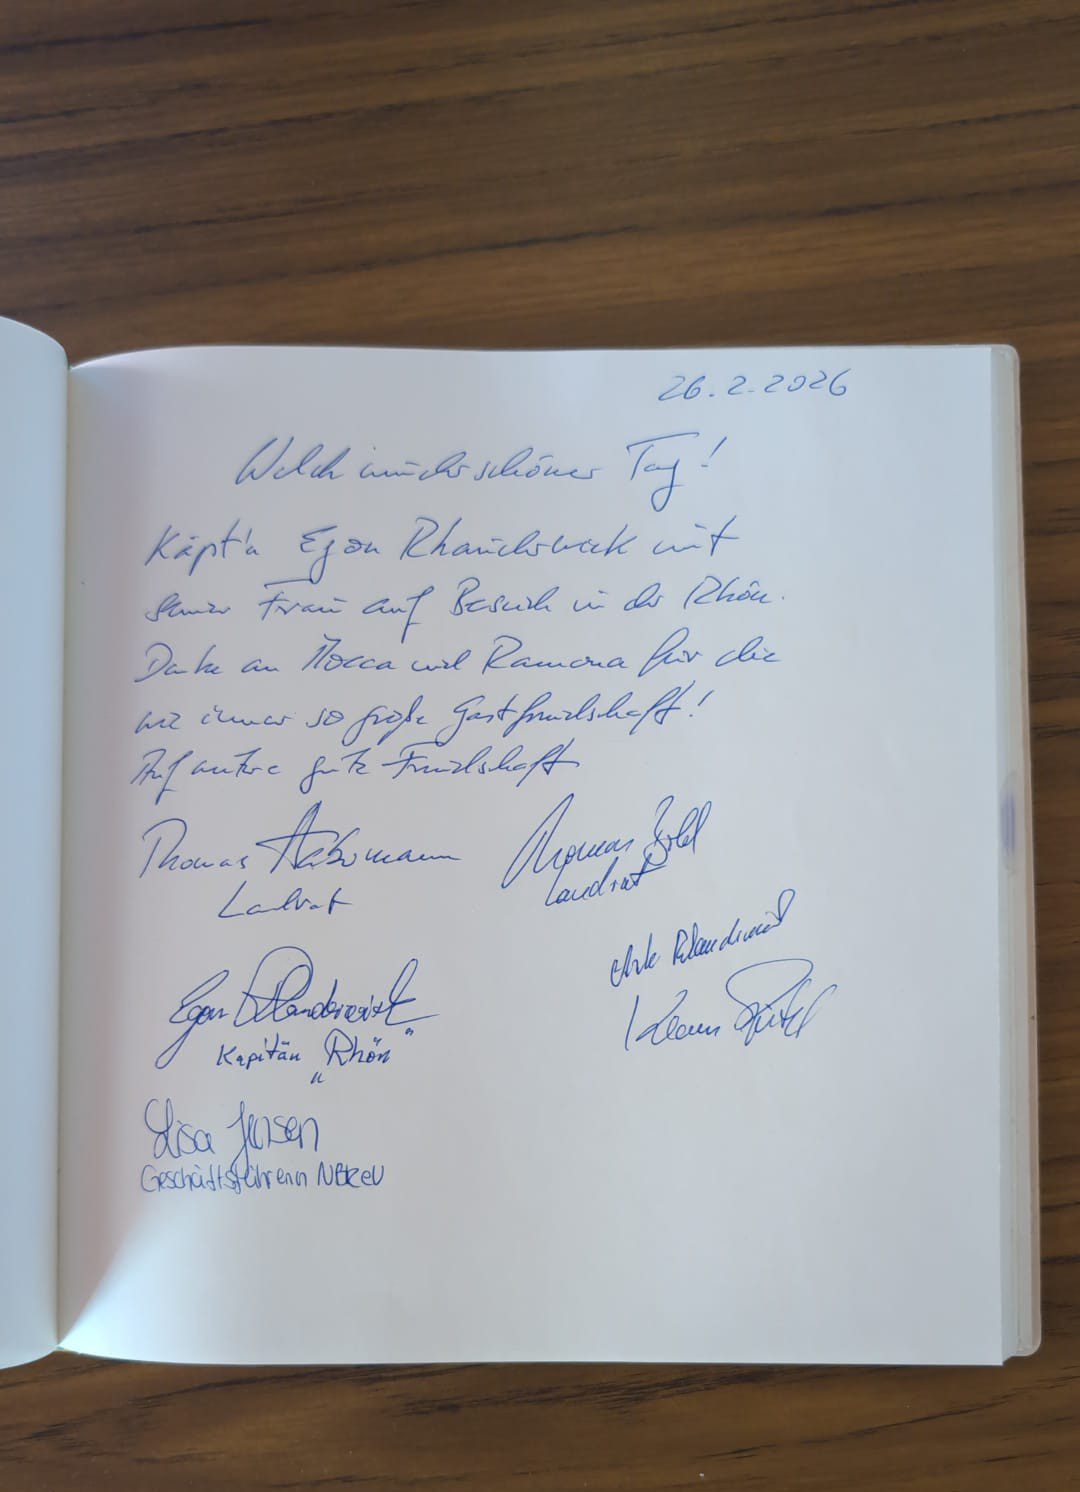 26.2.2026
Welch wunderschöner Tag!
Käpt'n Egon mit
seiner Frau auf Besuch in der Rhön.
Danke an Mocca und Ramona für die
wie immer so große Gastfreundschaft!
Auf weitere gute Freundschaft
Thomas Habermann Thomas Bold
Landrat Landrat
Egon
Kapitän „Rhön"
Klaus
Lisa Jensen
Geschäftsführerin